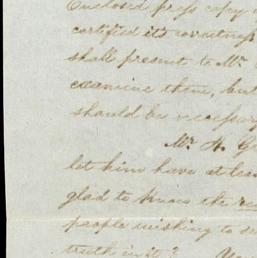 Enclosed press copy
certified its correctness
shall present to Mr.
examine them, but
should be necessary
Mr. A. G
let him have at leas
glad to know the re
people wishing to s
truth in it? You